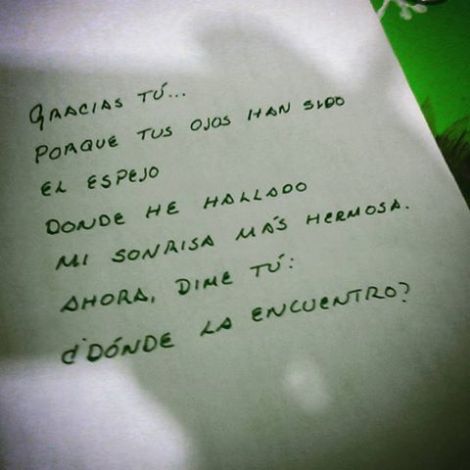 GRACIAS TÚ...
PORQUE TUS OJOS HAN SIDO
EL ESPEJO
DONDE HE HALLADO
MI SONRISA MÁS HERMOSA.
AHORA, DIME TÚ:
¿DÓNDE LA ENCUENTRO?